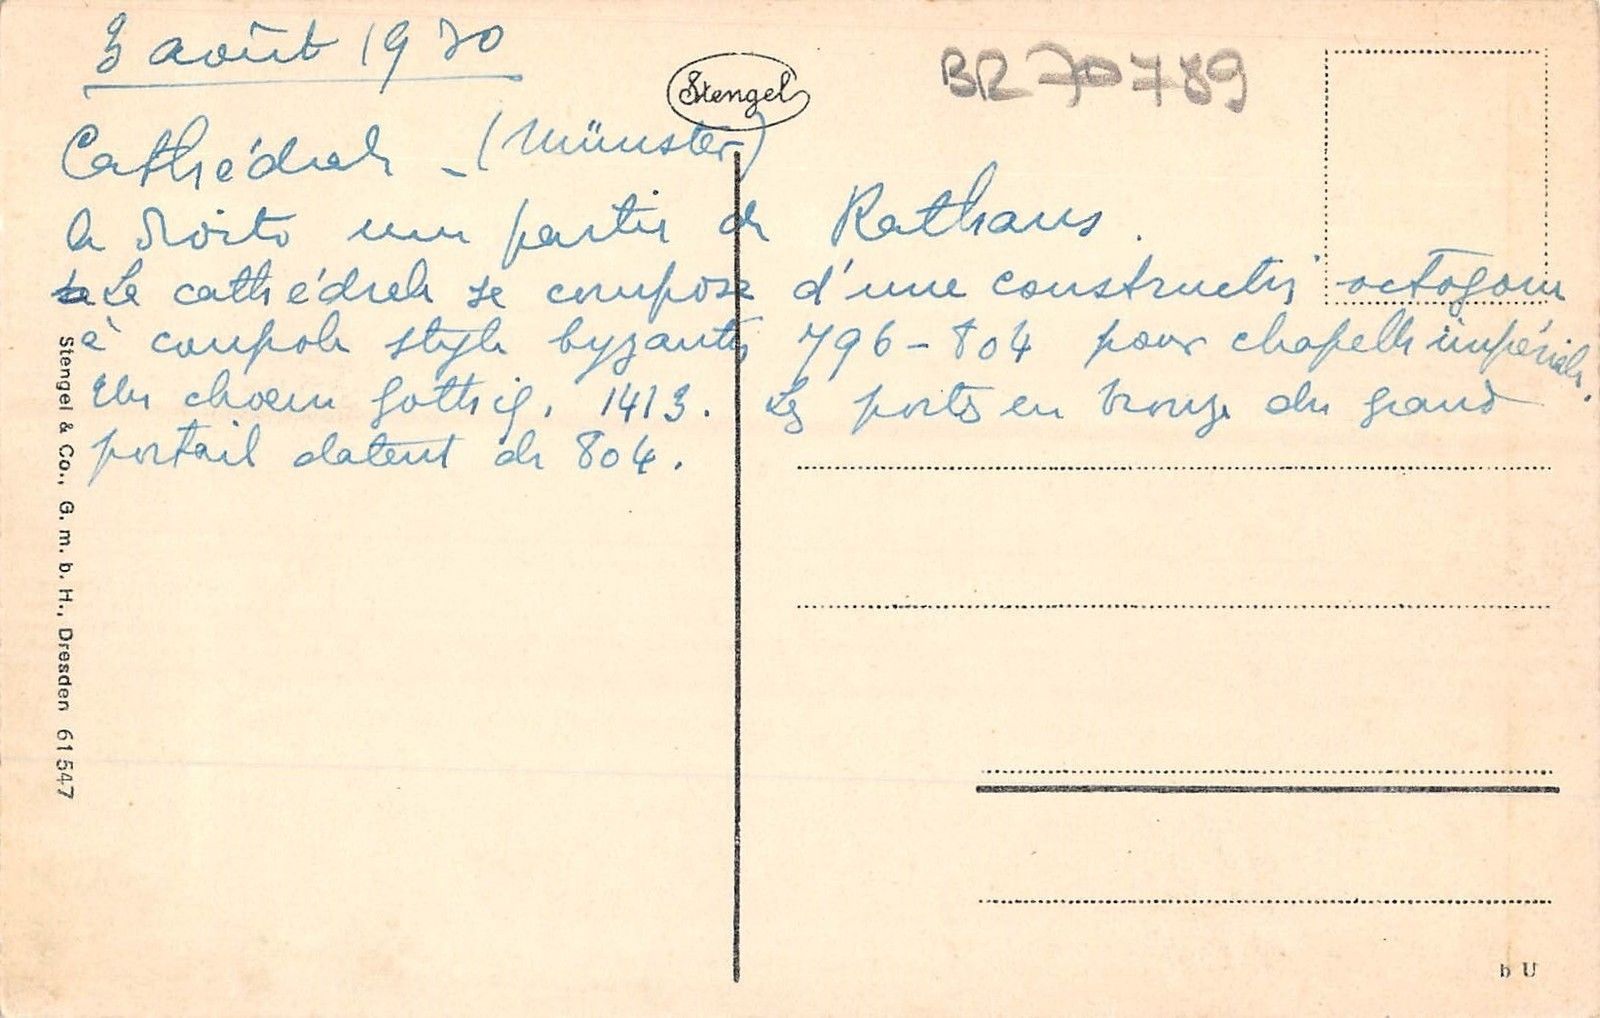 3 août 1930
Stengel
BR 70789
Cathédrale - (Münster)
à droite une partie de Rathaus.
La cathédrale se compose d'une construction octogone
à coupole style byzantin 796-804 pour chapelle impériale.
Un chœur gothiq. 1413. Les portes en bronze du grand
portail datent de 804.
Stengel & Co., G. m. b. H., Dresden 61547
b U